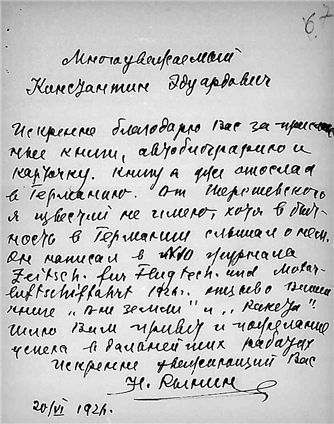 67
Многоуважаемый
Константин Эдуардович
Искренне благодарю Вас за прислан
ные книги, автобиографию и
карточку. Книгу я уже отослал
в Германию. От Шершевского
я известий не имею, хотя в быт
ность в Германии слышал о нем.
Он написал в журнала
Zeitsch. für Flugtech. und Motor-
luftschiffahrt 1926. Вашей
книге "Вне земли" и "Ракета"
Шлю Вам привет и пожелание
успеха в дальнейших работах
Искренне уважающий Вас
Н. Рынин
20/VI 1926.